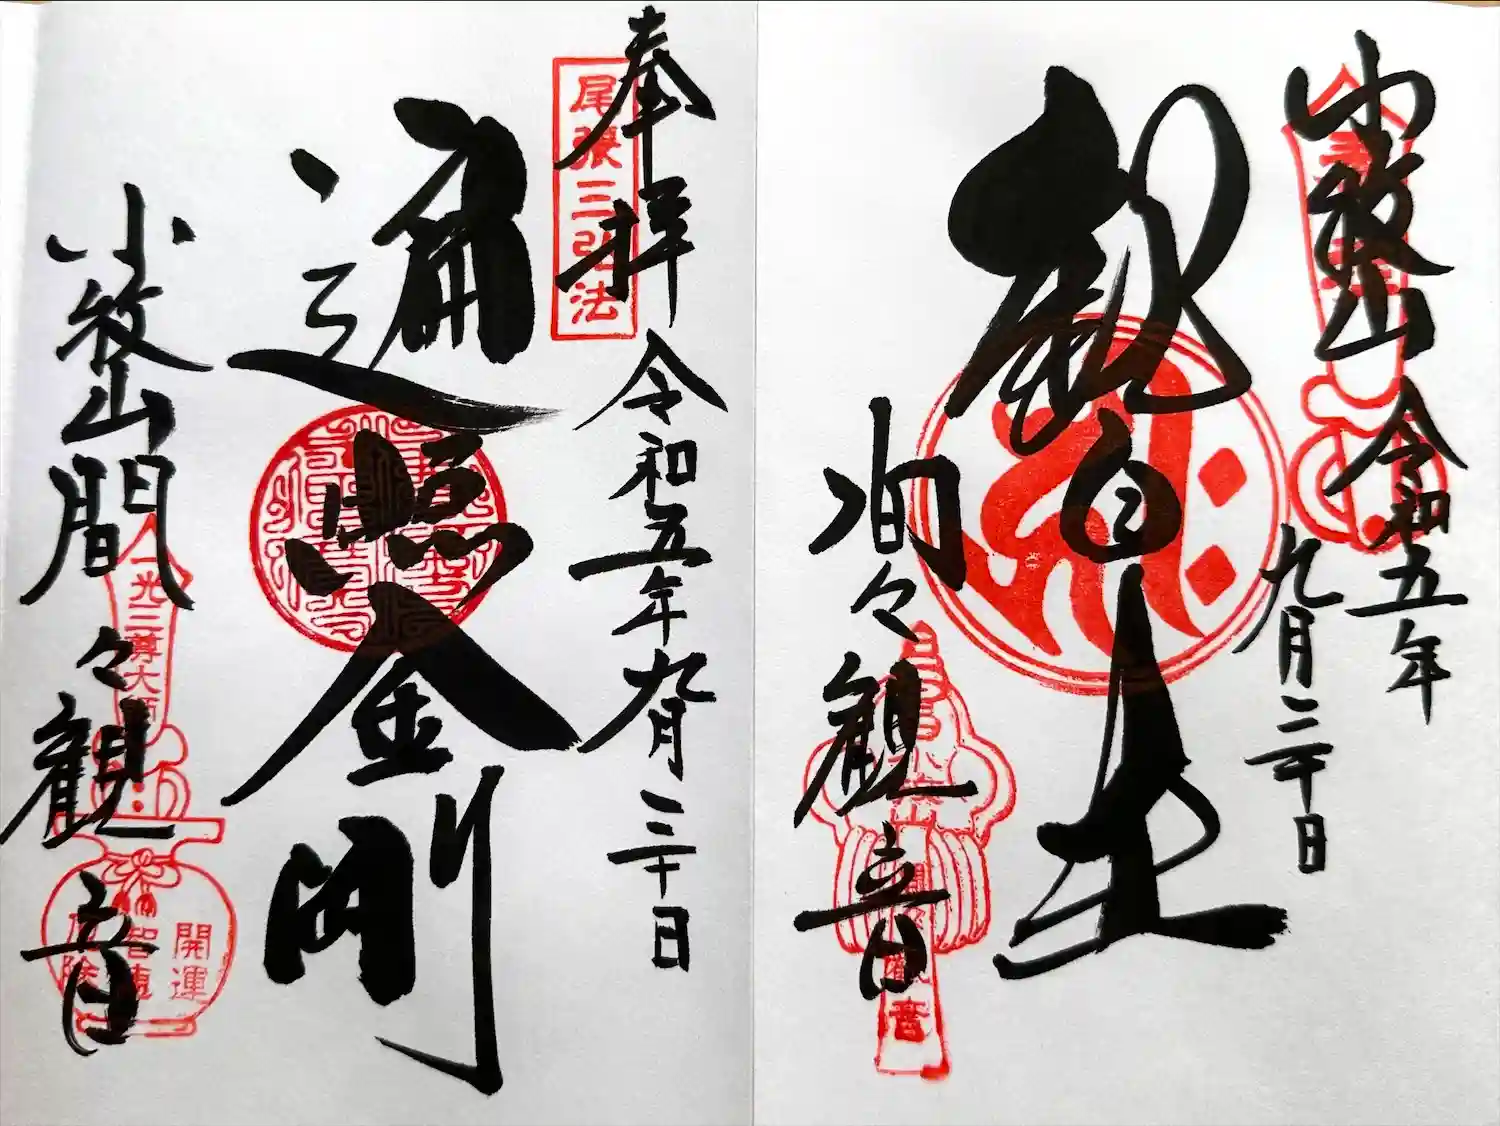 小牧山
令和五年
九月二十日
観自在
間々観音
奉拝
令和五年九月二十日
尾張三弘法
遍照金剛
小牧山
間々観音
一光三尊大師
開運
智慧